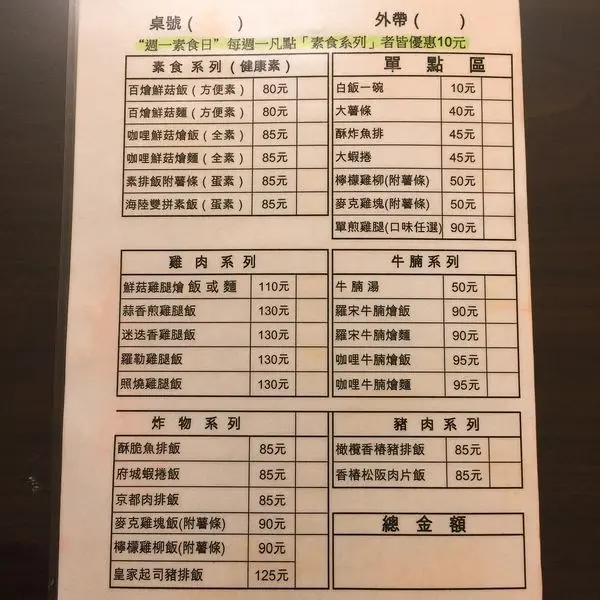 桌號( )
外帶( )
“週一素食日” 每週一凡點「素食系列」者皆優惠10元
素食系列(健康素)
百燴鮮菇飯(方便素) 80元
百燴鮮菇麵(方便素) 80元
咖哩鮮菇燴飯(全素) 85元
咖哩鮮菇燴麵(全素) 85元
素排飯附薯條(蛋素) 85元
海陸雙拼素飯(蛋素) 85元
單點區
白飯一碗 10元
大薯條 40元
酥炸魚排 45元
大蝦捲 45元
檸檬雞柳(附薯條) 50元
麥克雞塊(附薯條) 50元
單煎雞腿(口味任選) 90元
雞肉系列
鮮菇雞腿燴飯或麵 110元
蒜香煎雞腿飯 130元
迷迭香雞腿飯 130元
羅勒雞腿飯 130元
照燒雞腿飯 130元
牛腩系列
牛腩湯 50元
羅宋牛腩燴飯 90元
羅宋牛腩燴麵 90元
咖哩牛腩燴飯 95元
咖哩牛腩燴麵 95元
炸物系列
酥脆魚排飯 85元
府城蝦捲飯 85元
京都肉排飯 85元
麥克雞塊飯(附薯條) 90元
檸檬雞柳飯(附薯條) 90元
皇家起司豬排飯 125元
豬肉系列
橄欖香椿豬排飯 85元
香椿松阪肉片飯 85元
總金額